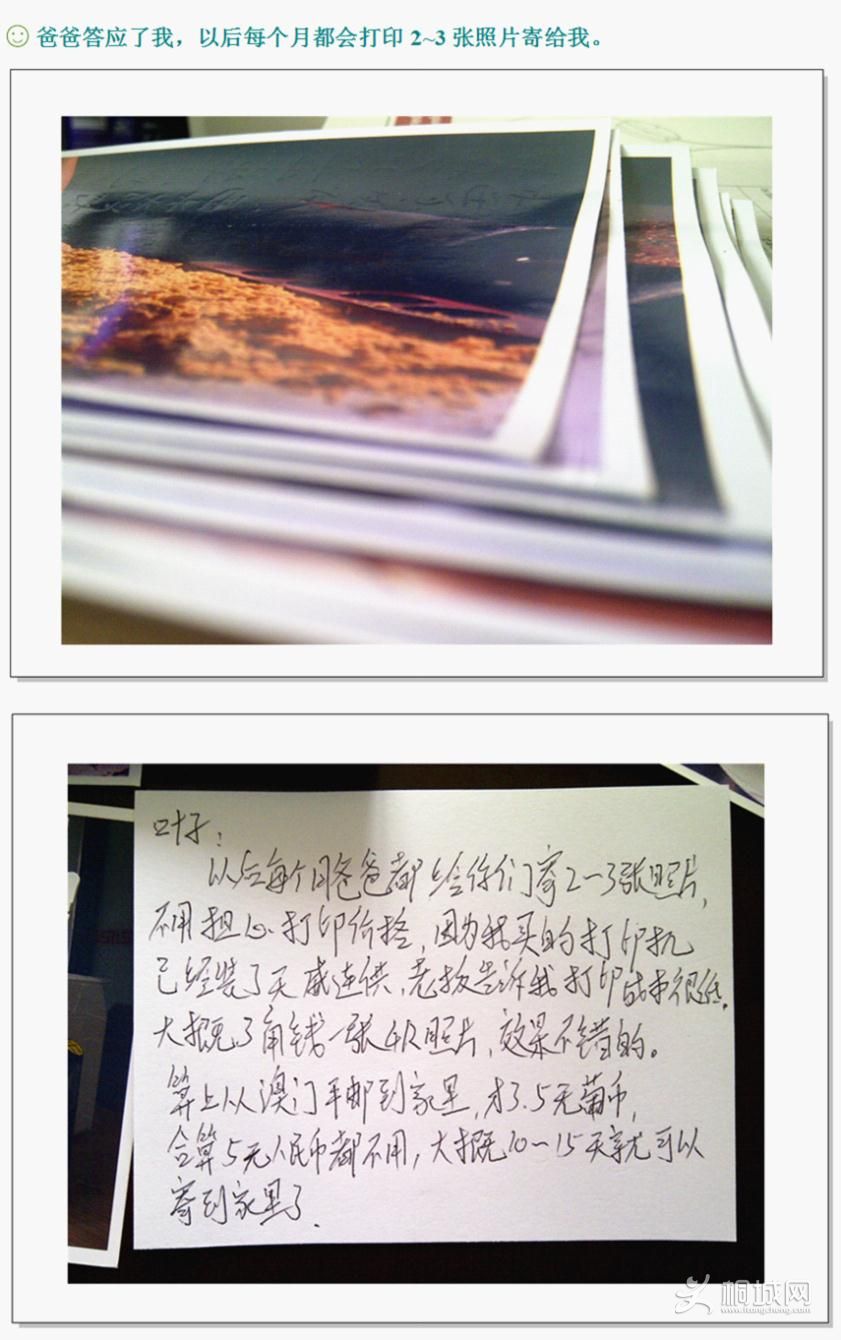 爸爸答应了我，以后每个月都会打印 2~3 张照片寄给我。
叶子：
以后每个月爸爸都给你们寄2~3张照片，
不用担心打印价格，因为我买的打印机
已经装了天威连供，老板告诉我打印成本很低。
大概3角钱一张4R照片，效果不错的。
算上从澳门平邮到家里，才3.5元葡币，
合算5元人民币都不用，大概10~15天就可以
寄到家里了.
桐城网
www.itongcheng.com